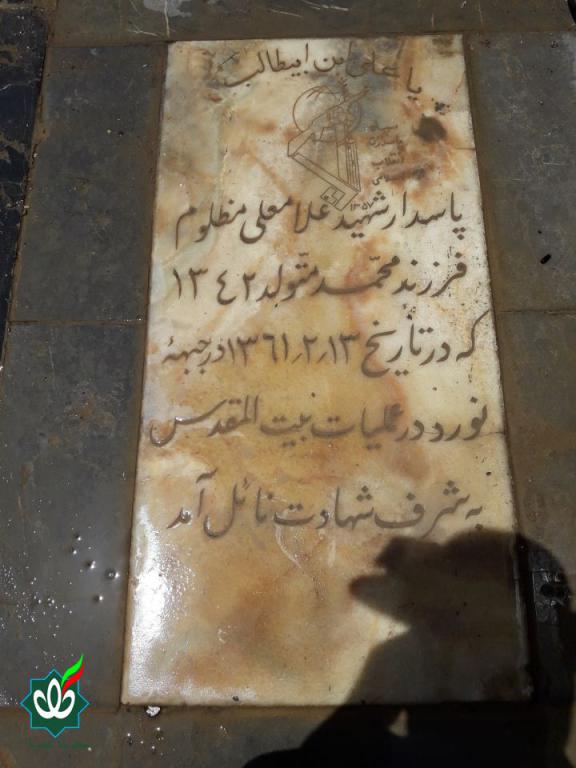 یا علی ابن ابیطالب
سپاه
پاسداران
انقلاب
اسلامی
۱۳۵۷
پاسدار شهید غلامعلی مظلوم
فرزند محمد متولد ۱۳۴۲
که در تاریخ ۱۳٫۲٫۱۳۶۱ در جبههٔ
نورد در عملیات بیت المقدس
به شرف شهادت نائل آمد